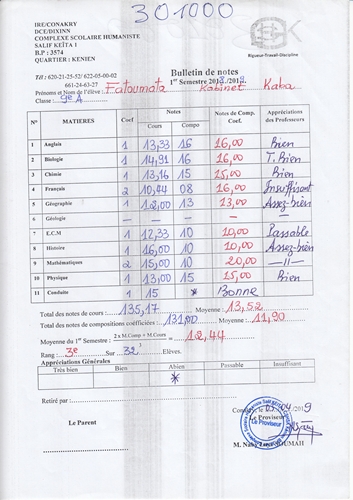 IRE/CONAKRY
DCE/DIXINN
COMPLEXE SCOLAIRE HUMANISTE
SALIF KEÏTA 1
B.P : 3574
QUARTIER : KENIEN
301000
Rigueur-Travail-Discipline
Tél : 620-21-25-52/ 622-05-00-02
661-24-63-27
Bulletin de notes
1er Semestre
Prénoms et Nom de l'élève : Fatoumata Kabinet Kaba
Classe : 9e A
N° MATIERES Coef Notes Notes de Comp. Coef. Appréciations des Professeurs
Cours Compo
1 Anglais 1 13,33 16 16,00 Bien
2 Biologie 1 14,91 16 16,00 T. Bien
3 Chimie 1 13,16 15 15,00 Bien
4 Français 2 10,44 08 16,00 Insuffisant
5 Géographie 1 12,00 13 13,00 Assez-bien
6 Géologie — — — — —
7 E.C.M 1 12,33 10 10,00 Passable
8 Histoire 1 16,00 10 10,00 Assez-bien
9 Mathématiques 2 15,00 10 20,00 —//—
10 Physique 1 13,00 15 15,00 Bien
11 Conduite 1 15 * Bonne
Total des notes de cours : 135,17 Moyenne : 13,52
Total des notes de compositions coéfficiées : 131,00 Moyenne : 11,90
Moyenne du 1er Semestre : 2 x M.Comp + M.Cours = 12,44
3
Rang : 3e Sur 32 Elèves.
Appréciations Générales
Très bien Bien Abien Passable Insuffisant
*
Retiré par :
Le Parent
Le Proviseur
Le Proviseur